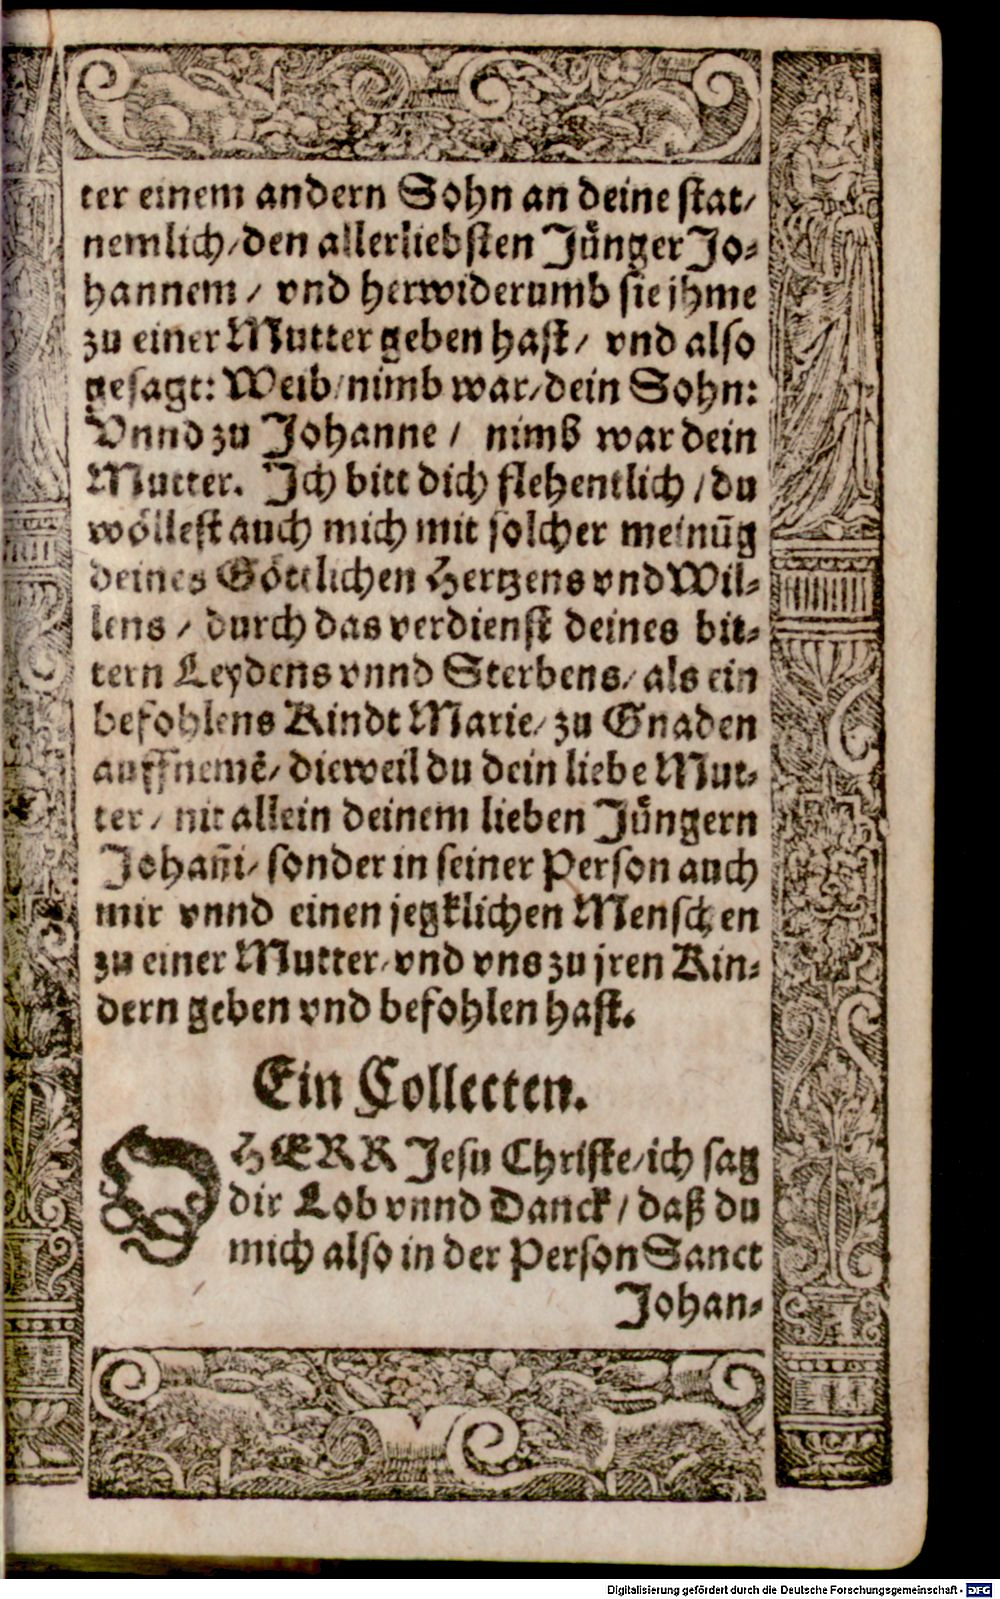 ter einem andern Sohn an deine stat/
nemlich/den allerliebsten Jünger Jo⸗
hannem / vnd herwiderumb sie jhme
zu einer Mutter geben hast/ vnd also
gesagt: Weib/nimb war/dein Sohn:
Vnnd zu Johanne / nimb war dein
Mutter. Ich bitt dich flehentlich/du
wöllest auch mich mit solcher meinūg
deines Göttlichen Hertzens vnd Wil⸗
lens / durch das verdienst deines bit⸗
tern Leydens vnnd Sterbens/als ein
befohlens Kindt Marie/zu Gnaden
auffnemē/ dieweil du dein liebe Mut⸗
ter/ nit allein deinem lieben Jüngern
Johan̄i/ sonder in seiner Person auch
mir vnnd einen jegklichen Menschen
zu einer Mutter/vnd vns zu jren Kin⸗
dern geben vnd befohlen hast.
Ein Collecten.
O HERR Jesu Christe/ich sag
dir Lob vnnd Danck/daß du
mich also in der Person Sanct
Johan⸗
Digitalisierung gefördert durch die Deutsche Forschungsgemeinschaft - DFG